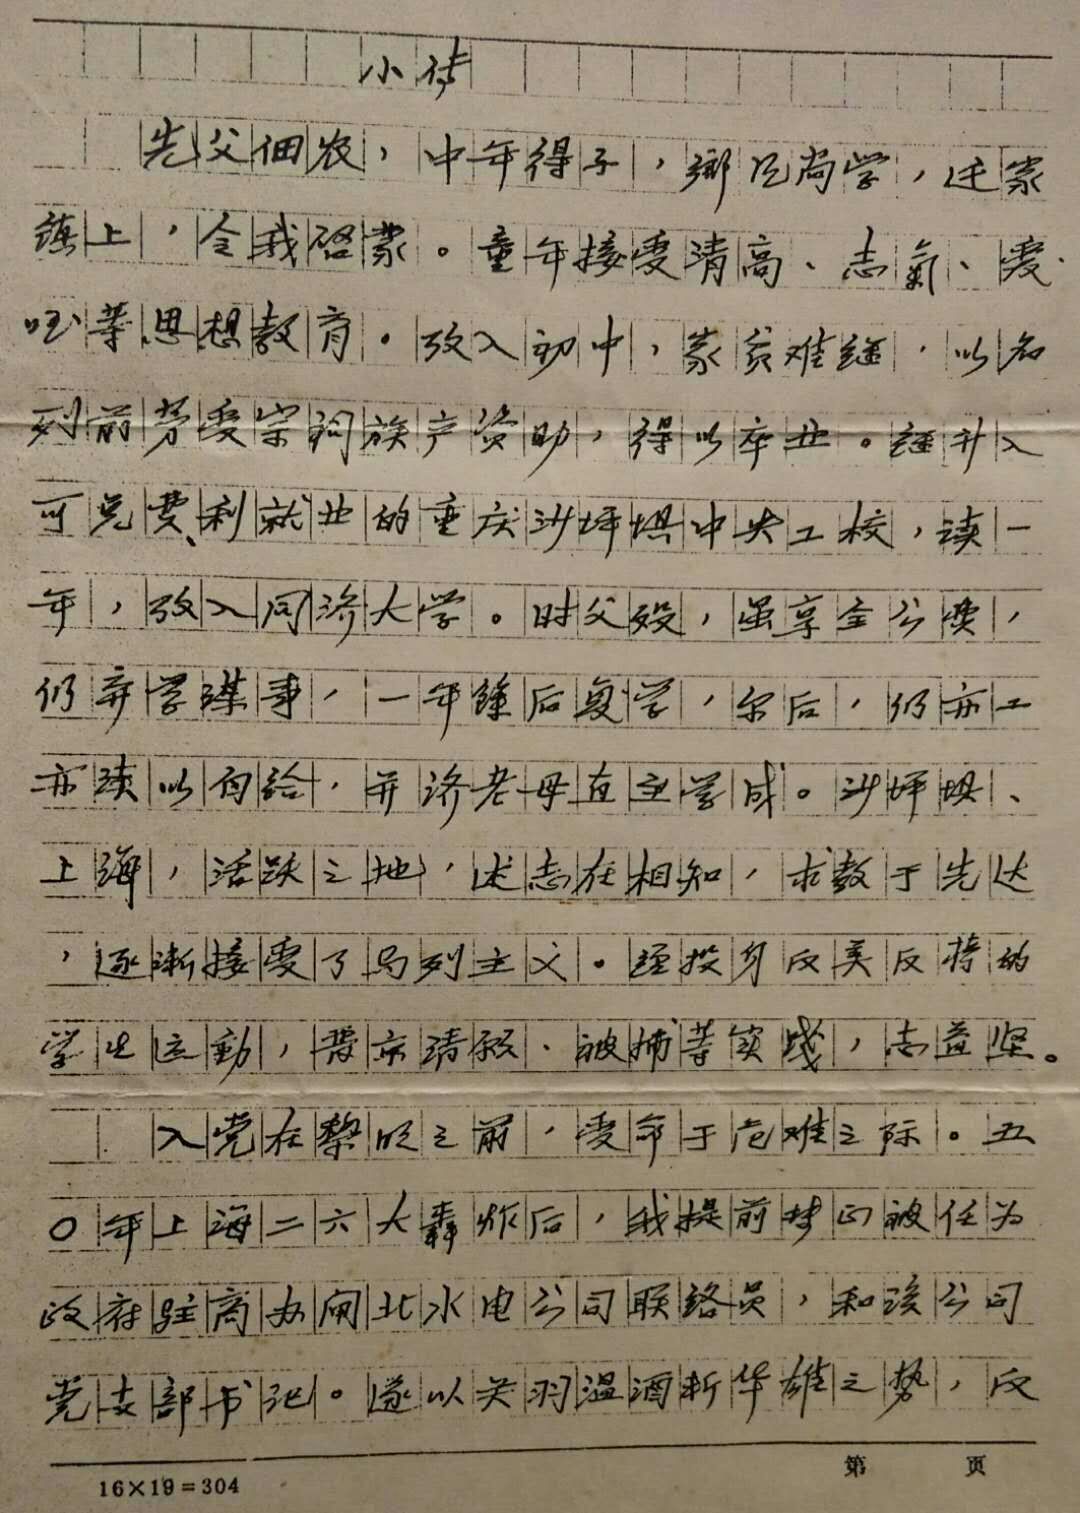 小传
先父佃农，中年得子，鄉民尚学，迁家
镇上，令我启蒙。童年接受清高、志氣、爱
国等思想教育。攷入初中，家贫难继，以名
列前茅受宗祠族产资助，得以卒业。经升入
可免费、利就业的重庆沙坪垻中央工校，读一
年，攷入同济大学。时父殁，虽享全公费，
仍弃学谋事，一年馀后复学，尔后，仍亦工
亦读以自给，并济老母直至学成。沙坪垻、
上海，活跃之地，述志在相知，求教于先达
，逐渐接受了马列主义。经投身反美反蒋的
学生运動，晋京请愿、被捕等实践，志益坚。
入党在黎明之前，受命于危难之际。五
〇年上海二六大轰炸后，我提前转正被任为
政府驻商办闸北水电公司联络员，和该公司
党支部书记。遂以关羽温酒斩华雄之势，反
16×19=304
第 页